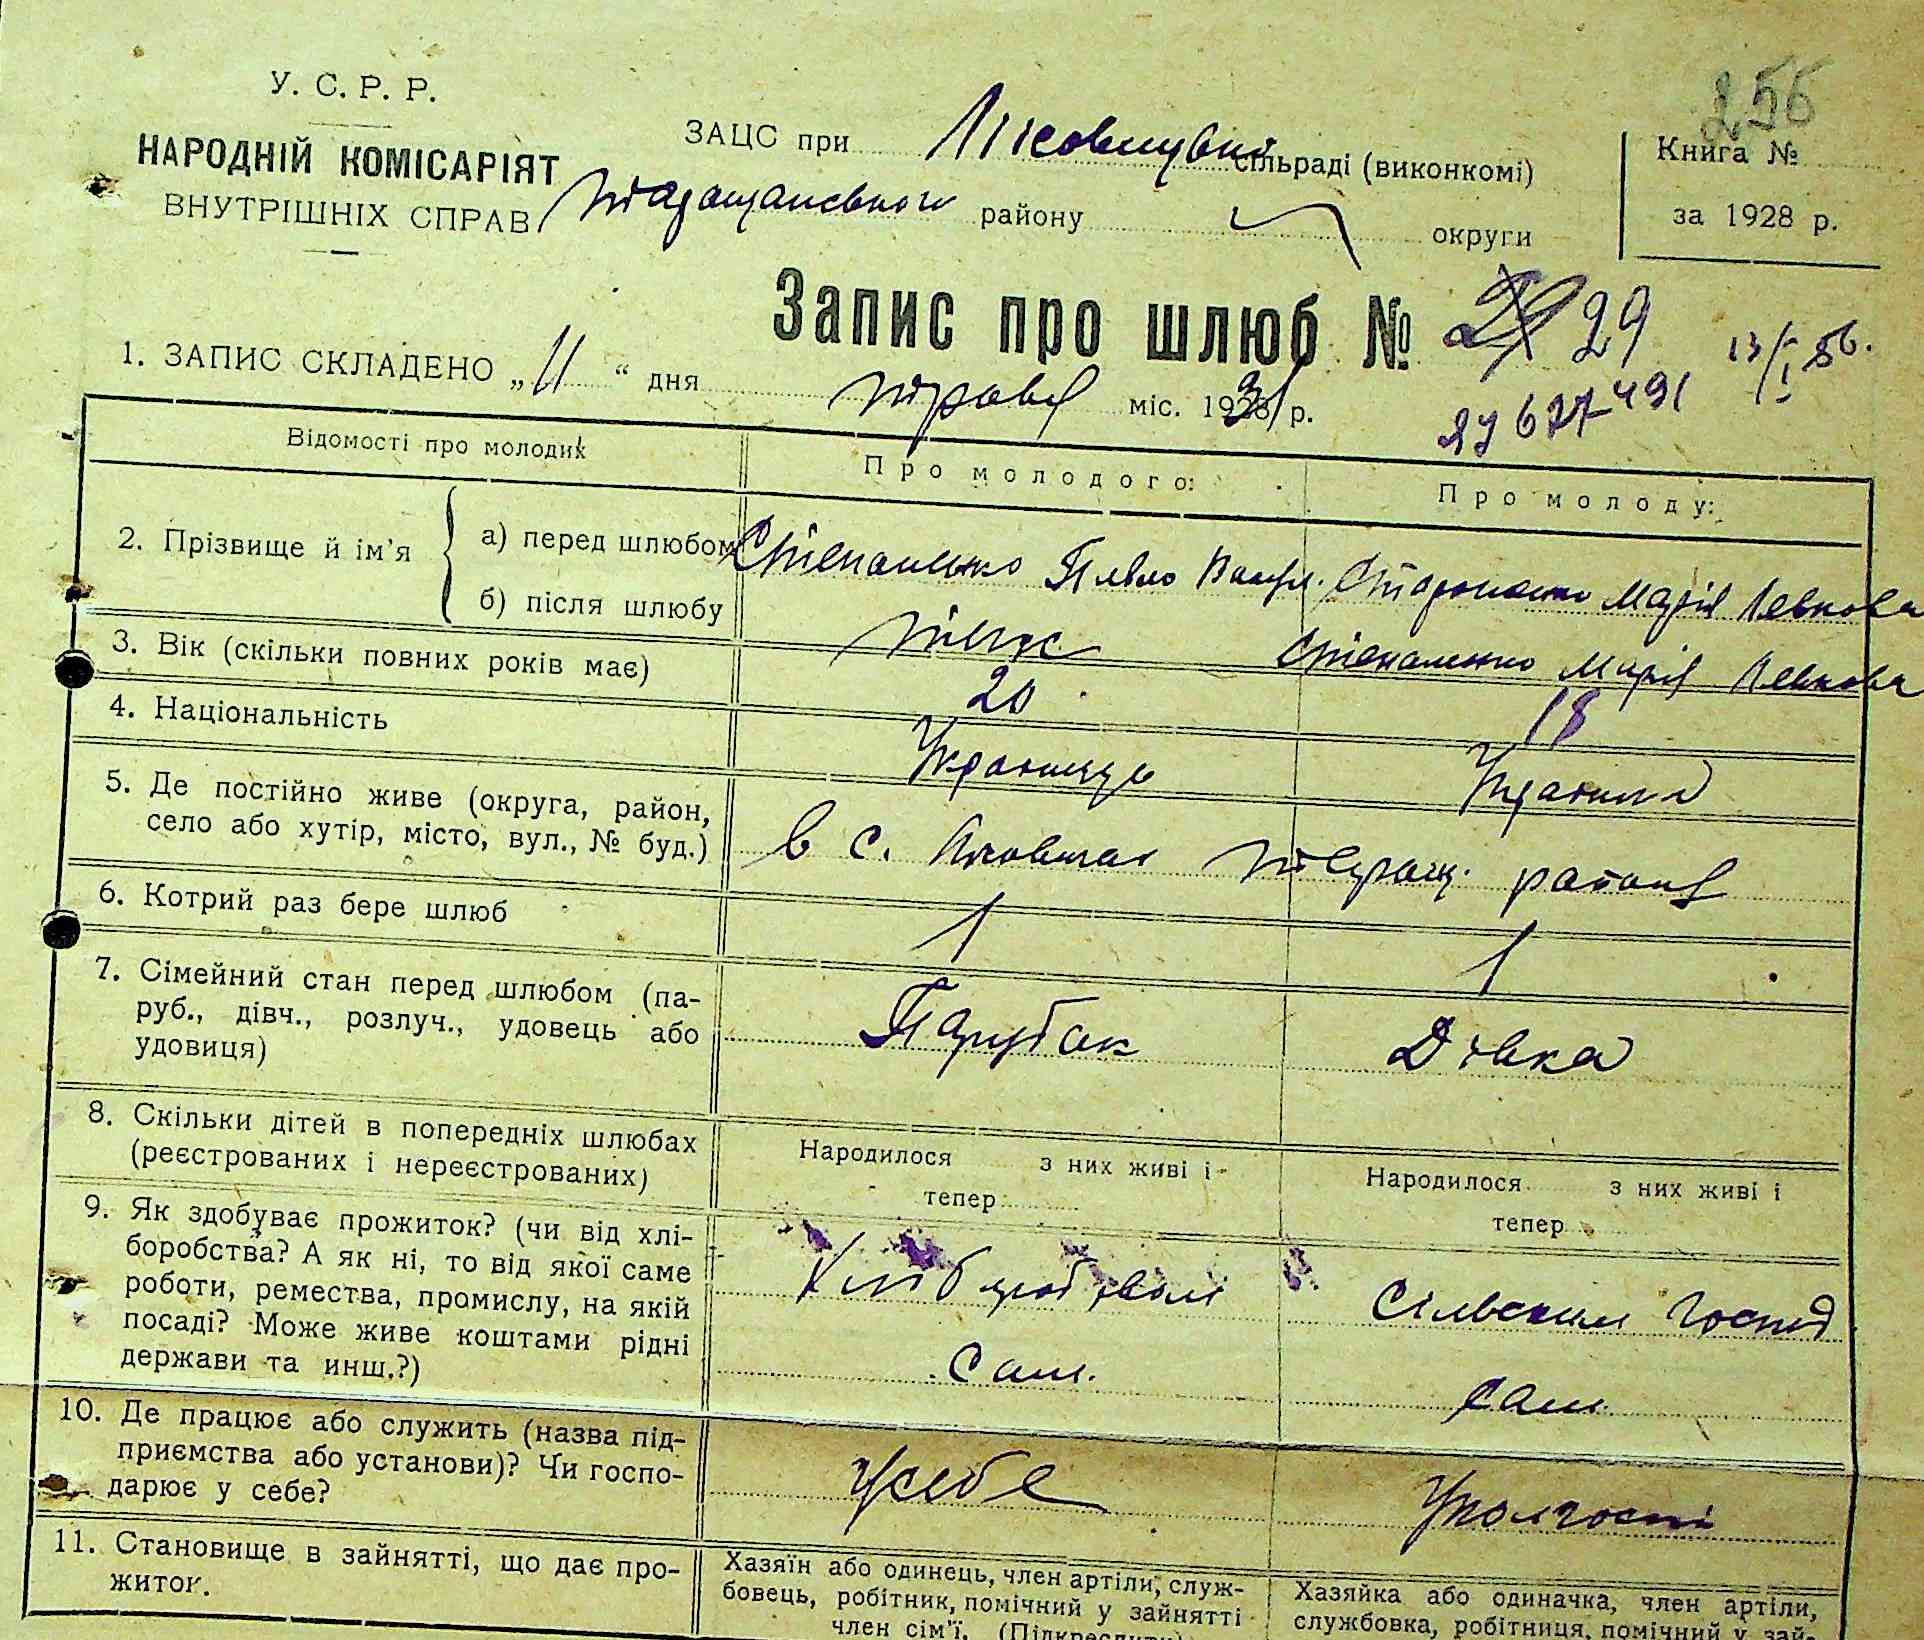 256
У. С. Р. Р.
НАРОДНІЙ КОМІСАРІЯТ
ВНУТРІШНІХ СПРАВ
ЗАЦС при сільраді (виконкомі)
Таращанського району округи
Книга №
за 1928 р.
Запис про шлюб № 29
13/I 56.
1. ЗАПИС СКЛАДЕНО „ 11 “ дня травня міс. 1931 р.
Відомості про молодих
Про молодого:
Про молоду:
2. Прізвище й ім’я
а) перед шлюбом
Степаненко Павло Вас
Марія Левкова
б) після шлюбу
теж
Степаненко Марія Левкова
3. Вік (скільки повних років має)
20
18
4. Національність
Українець
Українка
5. Де постійно живе (округа, район,
село або хутір, місто, вул., № буд.)
в с. Таращ. району
6. Котрий раз бере шлюб
1
1
7. Сімейний стан перед шлюбом (па-
руб., дівч., розлуч., удовець або
удовиця)
Парубак
Дівка
8. Скільки дітей в попередніх шлюбах
(реєстрованих і нереєстрованих)
Народилося з них живі і
тепер
Народилося з них живі і
тепер
9. Як здобуває прожиток? (чи від хлі-
боробства? А як ні, то від якої саме
роботи, ремества, промислу, на якій
посаді? Може живе коштами рідні
держави та инш.?)
Хліборобством
сам.
Сільским господ
сам
10. Де працює або служить (назва під-
приємства або установи)? Чи госпо-
дарює у себе?
У себе
У колгоспі
11. Становище в зайнятті, що дає про-
житок.
Хазяїн або одинець, член артіли, служ-
бовець, робітник, помічний у зайнятті
член сім’ї. (Підкреслити)
Хазяйка або одиначка, член артіли,
службовка, робітниця, помічний у зай-